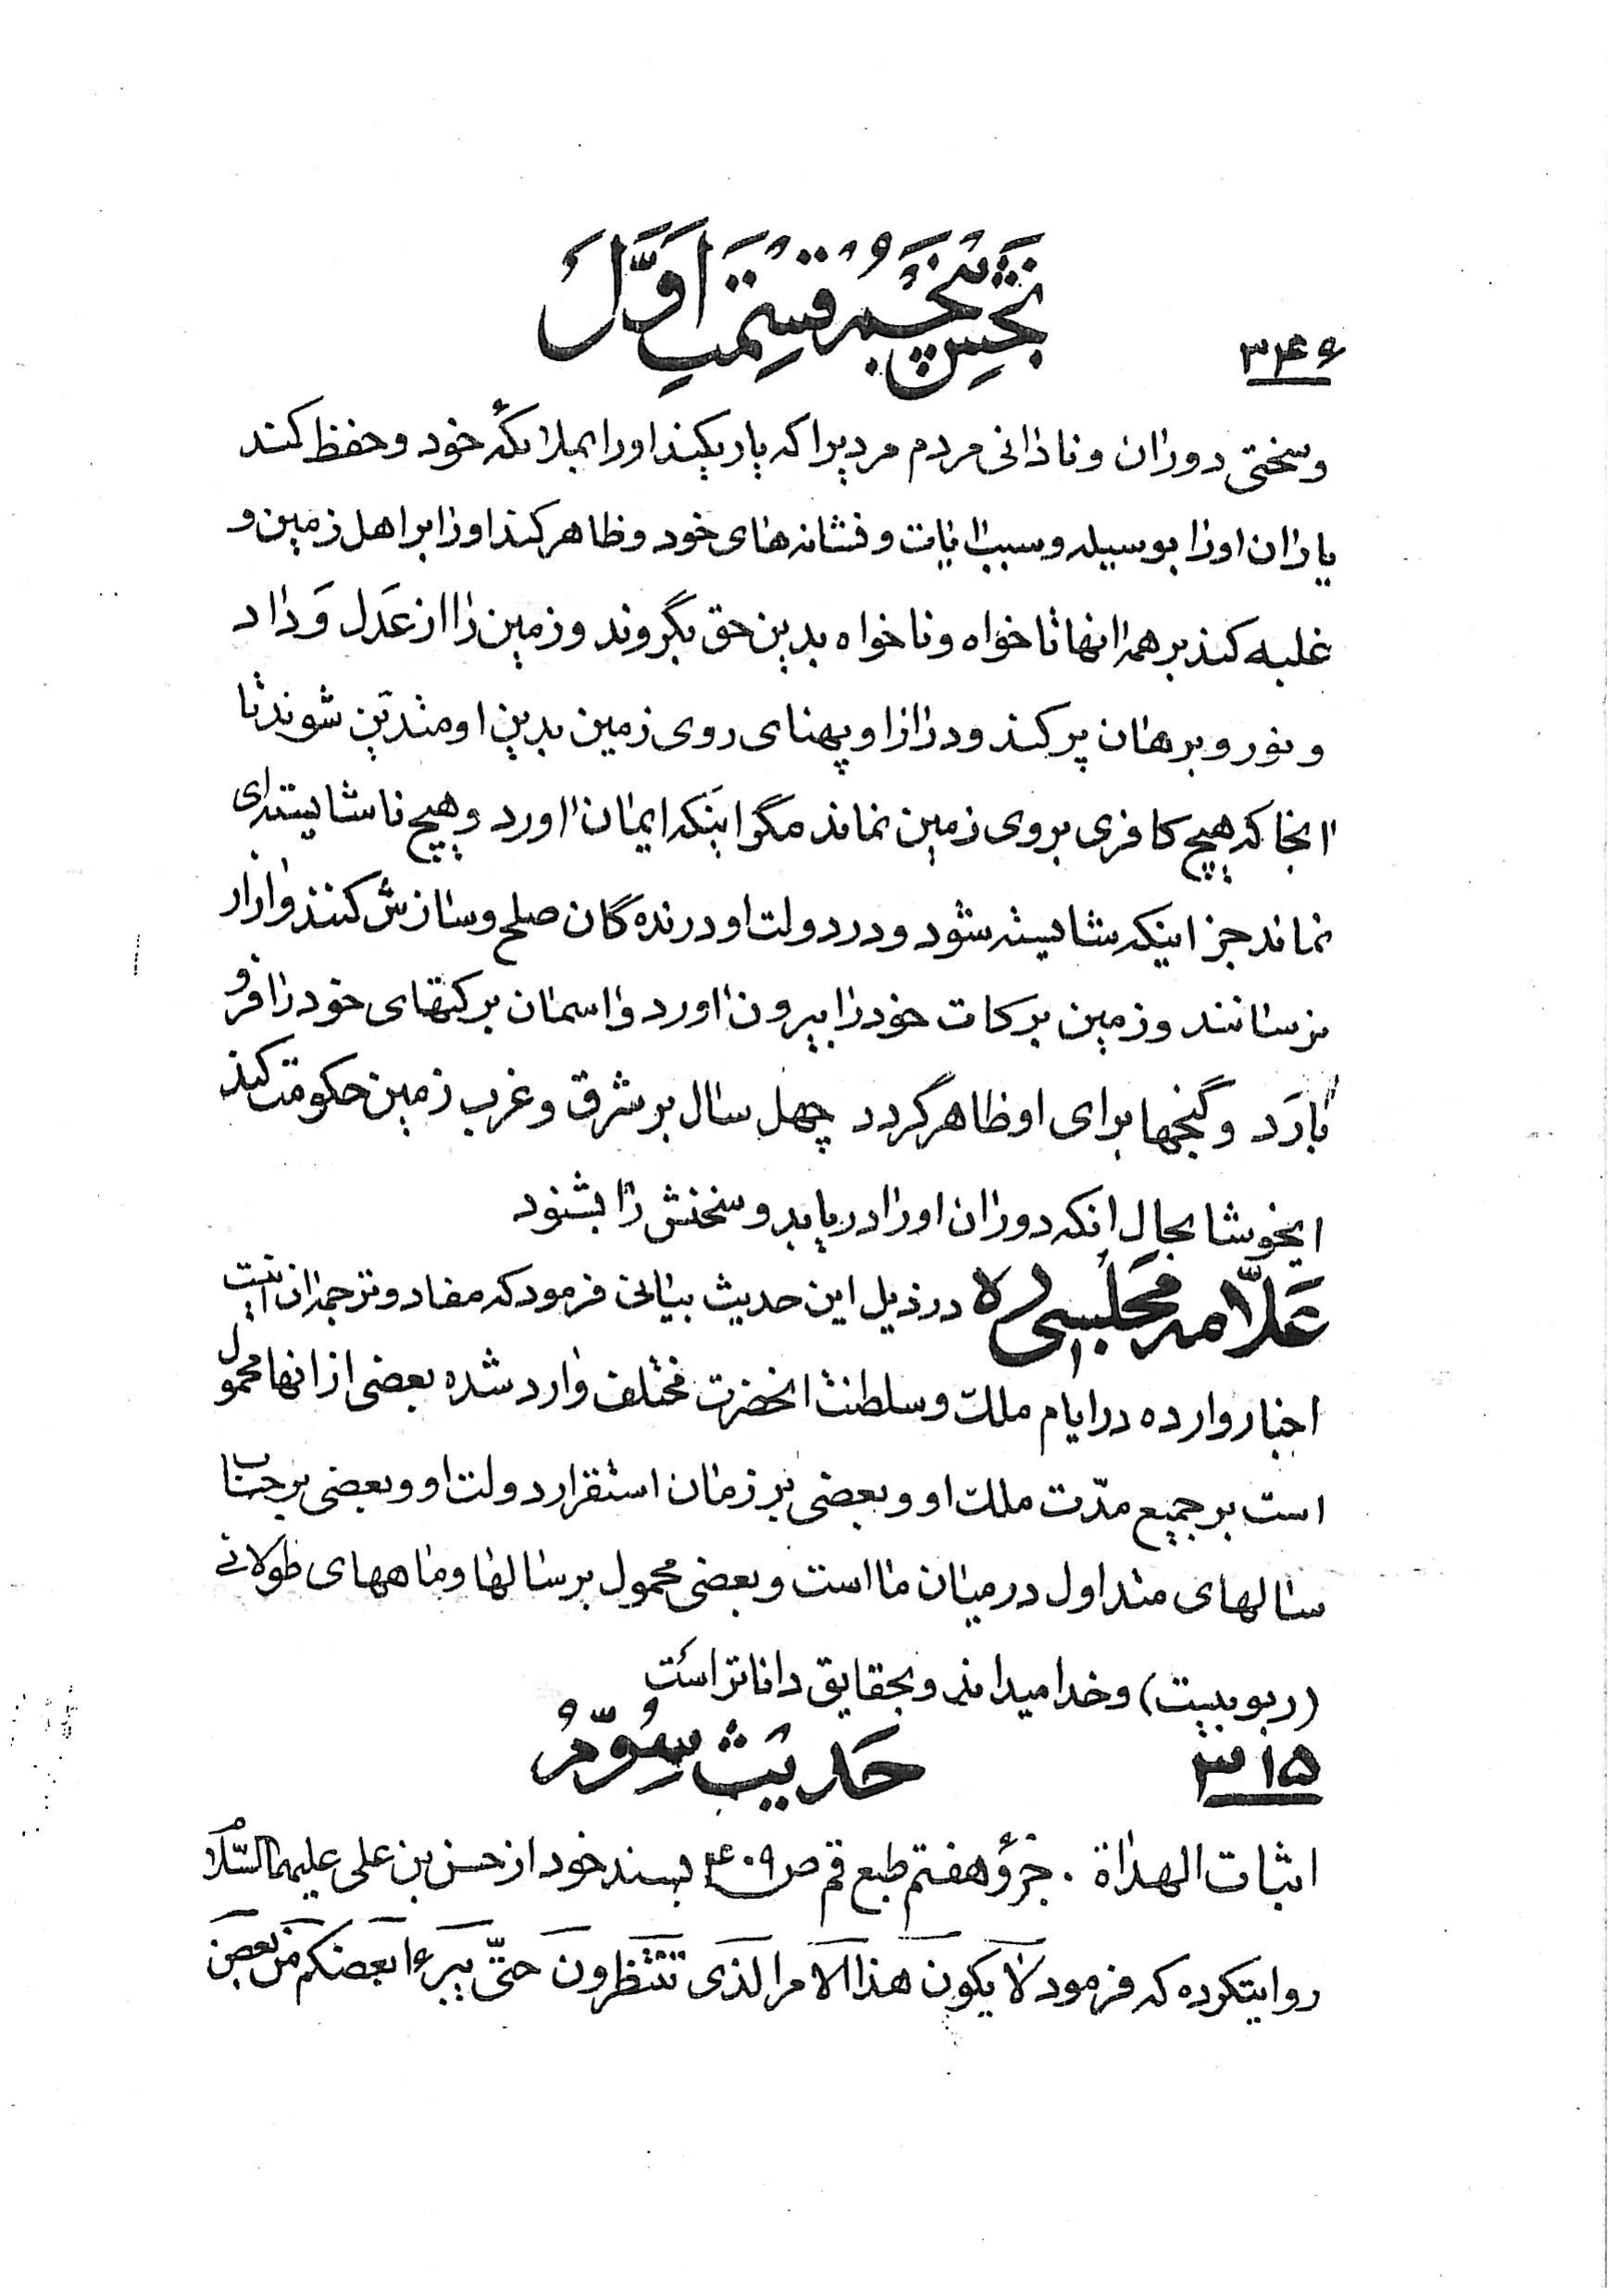 بخش پنجم قسمت اول
۳۴۶
و سختی دوران و نادانی مردم مردیرا که یاریکند او را بملائکهٔ خود و حفظ کند
یاران او را بوسیله و سبب ایات و نشانه های خود و ظاهر کند او را بر اهل زمین و
غلبه کند بر همه انها تا خواه و ناخواه بدین حق بگروند و زمین را از عَدل وَ داد
و نور و برهان پر کند و درازا و پهنای روی زمین بدین او متدیّن شوند تا
انجا که هیچ کافری بروی زمین نماند مگر اینکه ایمان اورد و هیچ ناشایسته‌ای
نماند جز اینکه شایسته شود و در دولت او درنده گان صلح و سازش کنند و ازار
نرسانند و زمین برکات خود را بیرون اورد و اسمان برکتهای خود را فرو
بارَد و گنجها برای او ظاهر گردد چهل سال بر شرق و غرب زمین حکومت کند
ایخوشا بحال انکه دوران او را دریابد و سخنش را بشنود
عَلّامه مَجلسی ره در ذیل این حدیث بیانی فرموده که مفاد و ترجمه ان اینست
اخبار وارده در ایام ملک و سلطنت انحضرت مختلف وارد شده بعضی از انها محمول
است بر جمیع مدّت ملک او و بعضی بر زمان استقرار دولت او و بعضی بر حساب
سالهای متداول در میان ما است و بعضی محمول بر سالها و ماههای طولانی
(ربوبیت) و خدا میداند و بحقایق داناتر است
۳۱۵ حَدیث سِوّم
اثبات الهداة . جزؤ هفتم طبع قم ص ۴۰۹ بسند خود از حسن بن علی علیهما السّلام
روایتکرده که فرمود لا یکون هذا الامر الذی تنتظرون حتّی یبرءا بعضکم من بعض